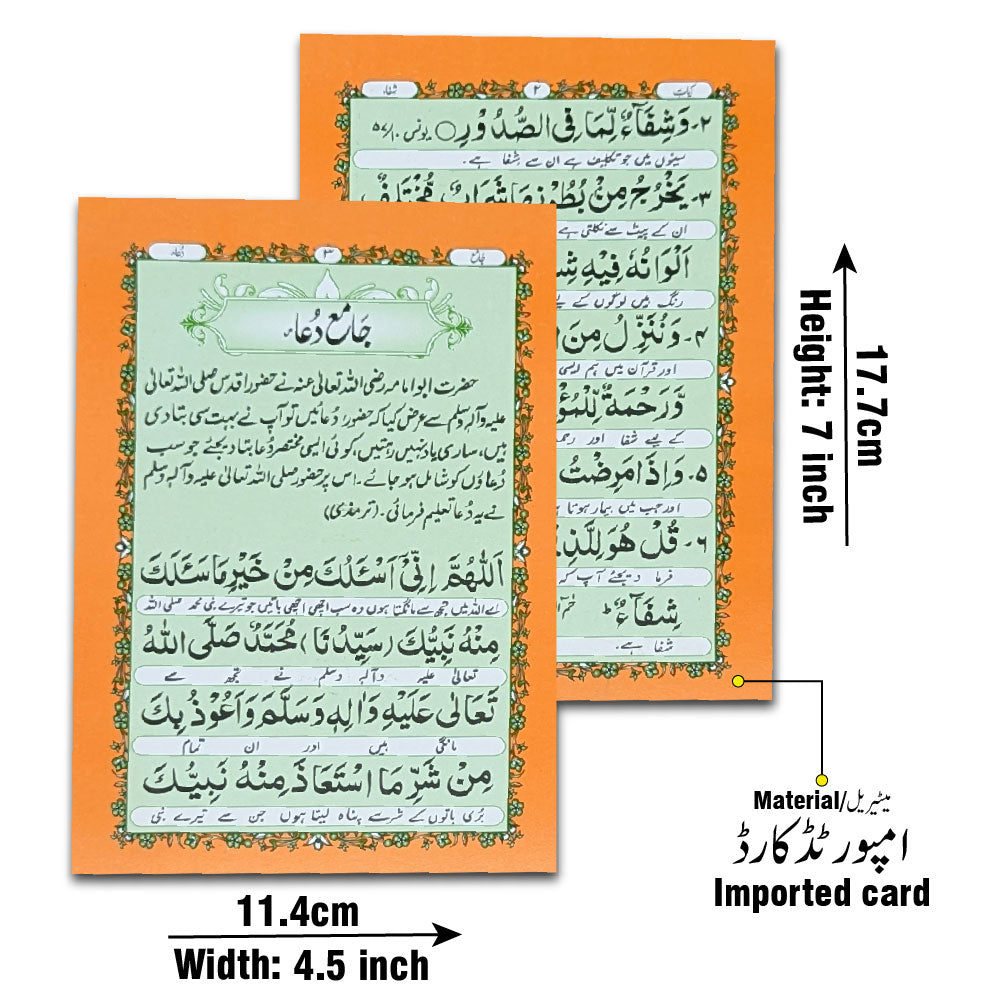 آیات
۲
شفاء
۲۔ وَشِفَآءٌ لِّمَا فِی الصُّدُوْرِ ○ یونس ۵۷/۱۰
سینوں میں جو تکلیف ہے ان سے شفا ہے۔
۳۔ یَخْرُجُ مِنْۢ بُطُوْنِهَا شَرَابٌ مُّخْتَلِفٌ
ان کے پیٹ سے نکلتی ہے
اَلْوَانُهٗ فِیْهِ
رنگ ہیں لوگوں کے
۴۔ وَنُنَزِّلُ مِنَ
اور قرآن میں ہم ایسی
وَّرَحْمَةٌ
کے لیے شفا اور
۵۔ وَاِذَا مَرِضْتُ
اور جب میں بیمار ہوتا
۶۔ قُلْ هُوَ لِلَّذِ
فرما دیجئے آپ
شِفَآءٌ ؕ
شفا ہے۔
جامع
۳
دُعاء
جَامع دُعاء
حضرت ابو امامہ رضی اللہ تعالیٰ عنہ نے حضور اقدس صلی اللہ تعالیٰ
علیہ وآلہ وسلم سے عرض کیا کہ حضور! دُعائیں تو آپ نے بہت سی بتا دی
ہیں، ساری یاد نہیں رہتیں، کوئی ایسی مختصر دُعا بتا دیجئے جو سب
دُعاؤں کو شامل ہو جائے۔ اس پر حضور صلی اللہ تعالیٰ علیہ وآلہ وسلم
نے یہ دُعا تعلیم فرمائی۔ (ترمذی)
اَللّٰهُمَّ اِنِّیْٓ اَسْئَلُكَ مِنْ خَیْرِ مَا سَئَلَكَ
اے اللہ میں تجھ سے مانگتا ہوں وہ سب اچھی اچھی باتیں جو تیرے نبی محمد صلی اللہ
مِنْهُ نَبِیُّكَ (سَیِّدُنَا) مُحَمَّدٌ صَلَّی اللّٰهُ
تعالیٰ علیہ وآلہ وسلم نے تجھ سے
تَعَالٰی عَلَیْهِ وَاٰلِهٖ وَسَلَّمَ وَاَعُوْذُ بِكَ
مانگی ہیں اور ان تمام
مِنْ شَرِّ مَا اسْتَعَاذَ مِنْهُ نَبِیُّكَ
بُری باتوں کے شر سے پناہ لیتا ہوں جن سے تیرے نبی
17.7cm
Height: 7 inch
11.4cm
Width: 4.5 inch
Material/میٹیریل
امپورٹڈ کارڈ
Imported card